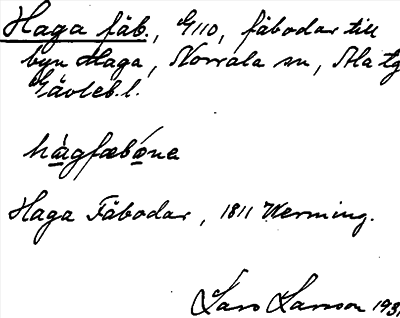 Haga fäb., G110, fäbodar till
byn Haga, Norrala sn, Ala tg
Gävleb. l.
hàgfæbóna
Haga Fäbodar, 1811 Werming.
Lars Larsson 193